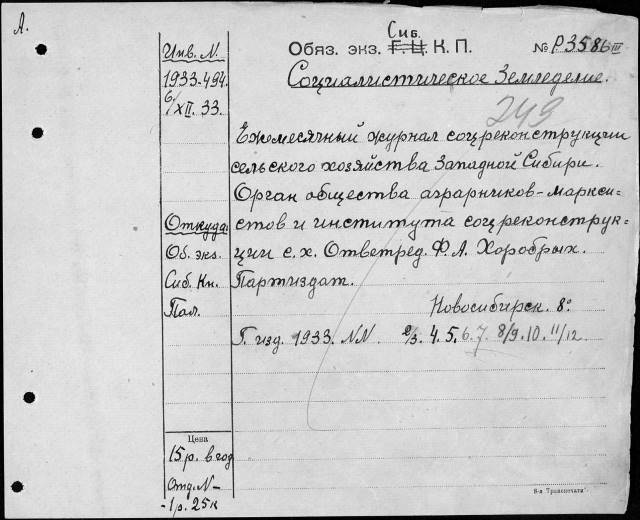 А.
Инв. N.
1933-494.
6/XII. 33.
Откуда:
Об. экз.
Сиб. Кн.
Пал.
Цена
15 р. в год
Отд. N–
– 1 р. 25 к
Сиб.
Обяз. экз. Г. Ц. К. П. № Р3586 III
Социалистическое Земледелие.
249
Ежемесячный журнал соц.реконструкции
сельского хозяйства Западной Сибири.
Орган общества аграрников-маркси-
стов и института соц.реконструк-
ции с. х. Ответред. Ф. А. Хоробрых.
Партиздат.
Новосибирск. 8°
Г. изд. 1933. NN. 2/3. 4. 5. 6. 7. 8/9. 10. 11/12.
8-я "Транспечати".